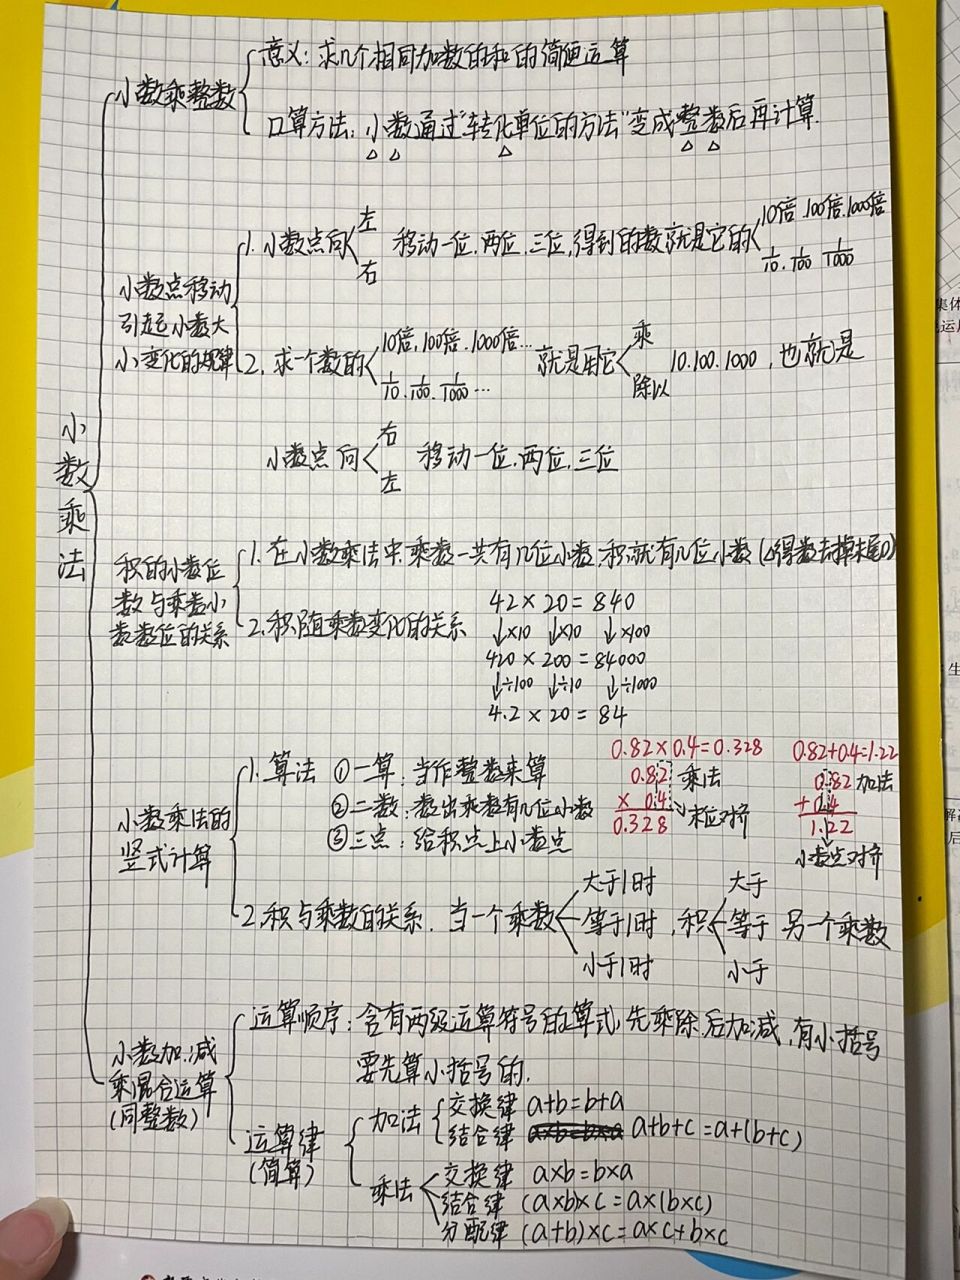 小数乘法
小数乘整数
意义：求几个相同加数的和的简便运算
口算方法：小数通过"转化单位的方法"变成整数后再计算.
小数点移动
引起小数大
小变化的规律
1. 小数点向
左
右
移动一位.两位.三位,得到的数就是它的
10倍.100倍.1000倍
1/10.1/100 1/1000
2. 求一个数的
10倍,100倍.1000倍…
1/10.1/100.1/1000…
就是用它
乘
除以
10.100.1000，也就是
小数点向
右
左
移动一位.两位.三位
积的小数位
数与乘数小
数数位的关系
1.在小数乘法中.乘数一共有几位小数,积就有几位小数(△得数去掉末尾0)
2.积随乘数变化的关系
42×20=840
↓×10 ↓×10 ↓×100
420×200=84000
↓÷100 ↓÷10 ↓÷1000
4.2×20=84
小数乘法的
竖式计算
1.算法 ①一算：当作整数来算
②二数：数出乘数有几位小数
③三点：给积点上小数点
0.82×0.4=0.328
0.82 乘法
×0.4 末位对齐
0.328
0.82+0.4=1.22
0.82 加法
+0.4
1.22
小数点对齐
2.积与乘数的关系. 当一个乘数
大于1时
等于1时
小于1时
,积
大于
等于
小于
另一个乘数
小数加.减
乘混合运算
(同整数)
运算顺序：含有两级运算符号的算式,先乘除后加减,有小括号
要先算小括号的.
运算律
(简算)
加法
交换律 a+b=b+a
结合律 a+b+c=a+(b+c)
乘法
交换律 a×b=b×a
结合律 (a×b)×c=a×(b×c)
分配律 (a+b)×c=a×c+b×c
集体
生
解
后